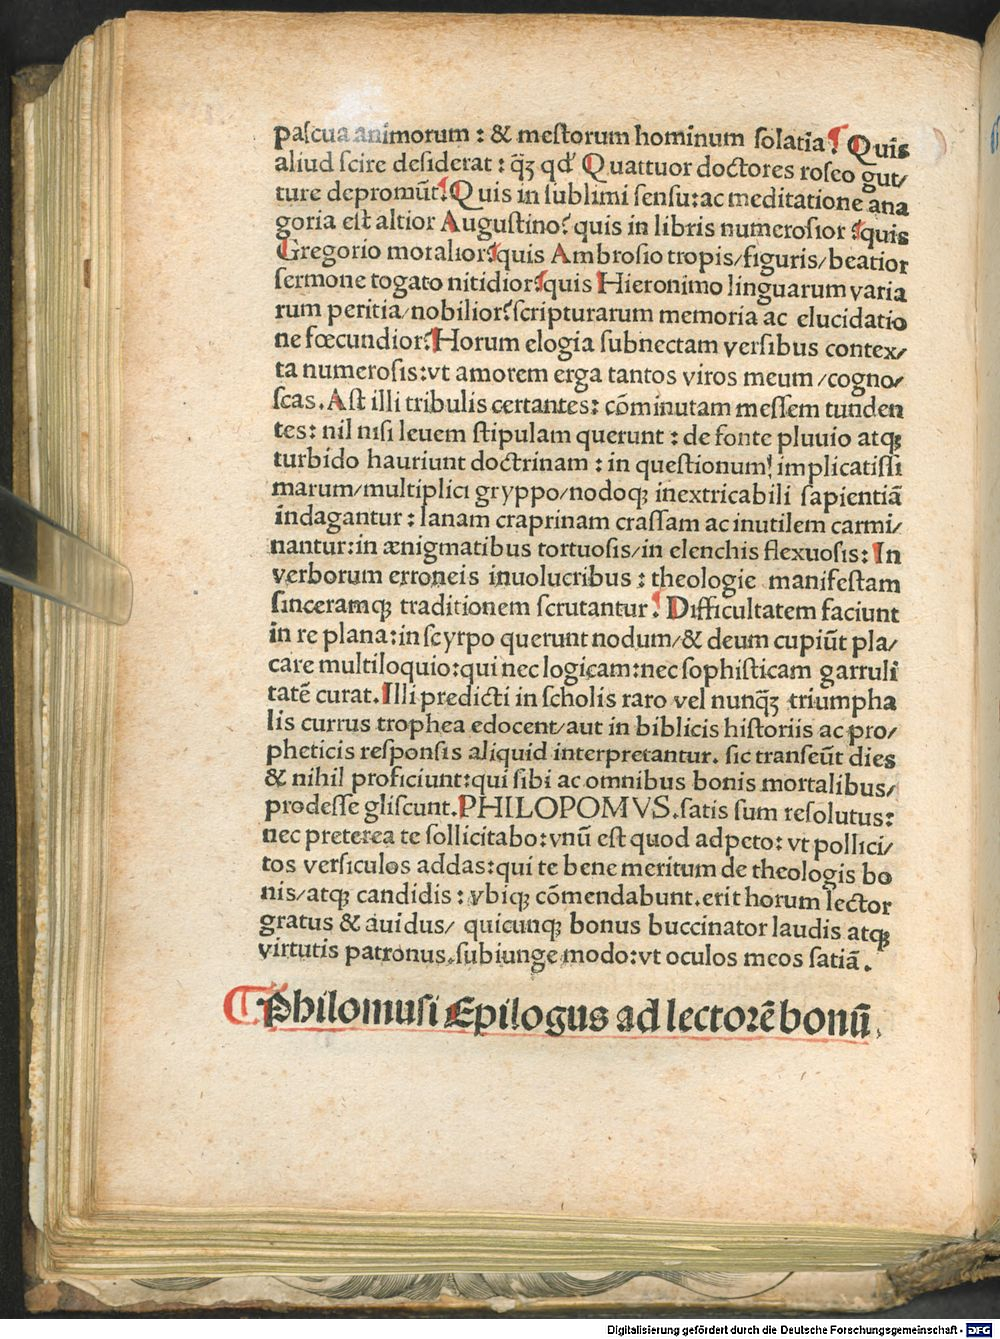 pascua animorum : & mestorum hominum solatia? Quis
aliud scire desiderat : q̃ꝫ qđ Quattuor doctores roseo gut/
ture depromūt? Quis in sublimi sensu: ac meditatione ana
goria est altior Augustino? quis in libris numerosior ? quis
Gregorio moralior? quis Ambrosio tropis/figuris/beatior
sermone togato nitidior? quis Hieronimo linguarum varia
rum peritia/nobilior? scripturarum memoria ac elucidatio
ne fœcundior? Horum elogia subnectam versibus contex/
ta numerosis: vt amorem erga tantos viros meum/cogno/
scas. Ast illi tribulis certantes: cōminutam messem tunden
tes: nil nisi leuem stipulam querunt : de fonte pluuio atqꝫ
turbido hauriunt doctrinam : in questionum! implicatissi
marum/multiplici gryppo/nodoqꝫ inextricabili sapientiā
indagantur : lanam craprinam crassam ac inutilem carmi/
nantur: in ænigmatibus tortuosis/in elenchis flexuosis: In
verborum erroneis inuolucribus : theologie manifestam
sinceramqꝫ traditionem scrutantur? Difficultatem faciunt
in re plana: in scyrpo querunt nodum/& deum cupiūt pla/
care multiloquio: qui nec logicam: nec sophisticam garruli
tatē curat. Illi predicti in scholis raro vel nunq̃ꝫ triumpha
lis currus trophea edocent/aut in biblicis historiis ac pro/
pheticis responsis aliquid interpretantur. sic transeūt dies
& nihil proficiunt: qui sibi ac omnibus bonis mortalibus/
prodesse gliscunt. PHILOPOMVS. satis sum resolutus:
nec preterea te sollicitabo: vnū est quod adpeto: vt pollici/
tos versiculos addas: qui te bene meritum de theologis bo
nis/atqꝫ candidis : vbiqꝫ cōmendabunt. erit horum lector
gratus & auidus/ quicunqꝫ bonus buccinator laudis atqꝫ
virtutis patronus. subiunge modo: vt oculos meos satiā.
¶ Philomusi Epilogus ad lectorē bonū.
Digitalisierung gefördert durch die Deutsche Forschungsgemeinschaft - DFG